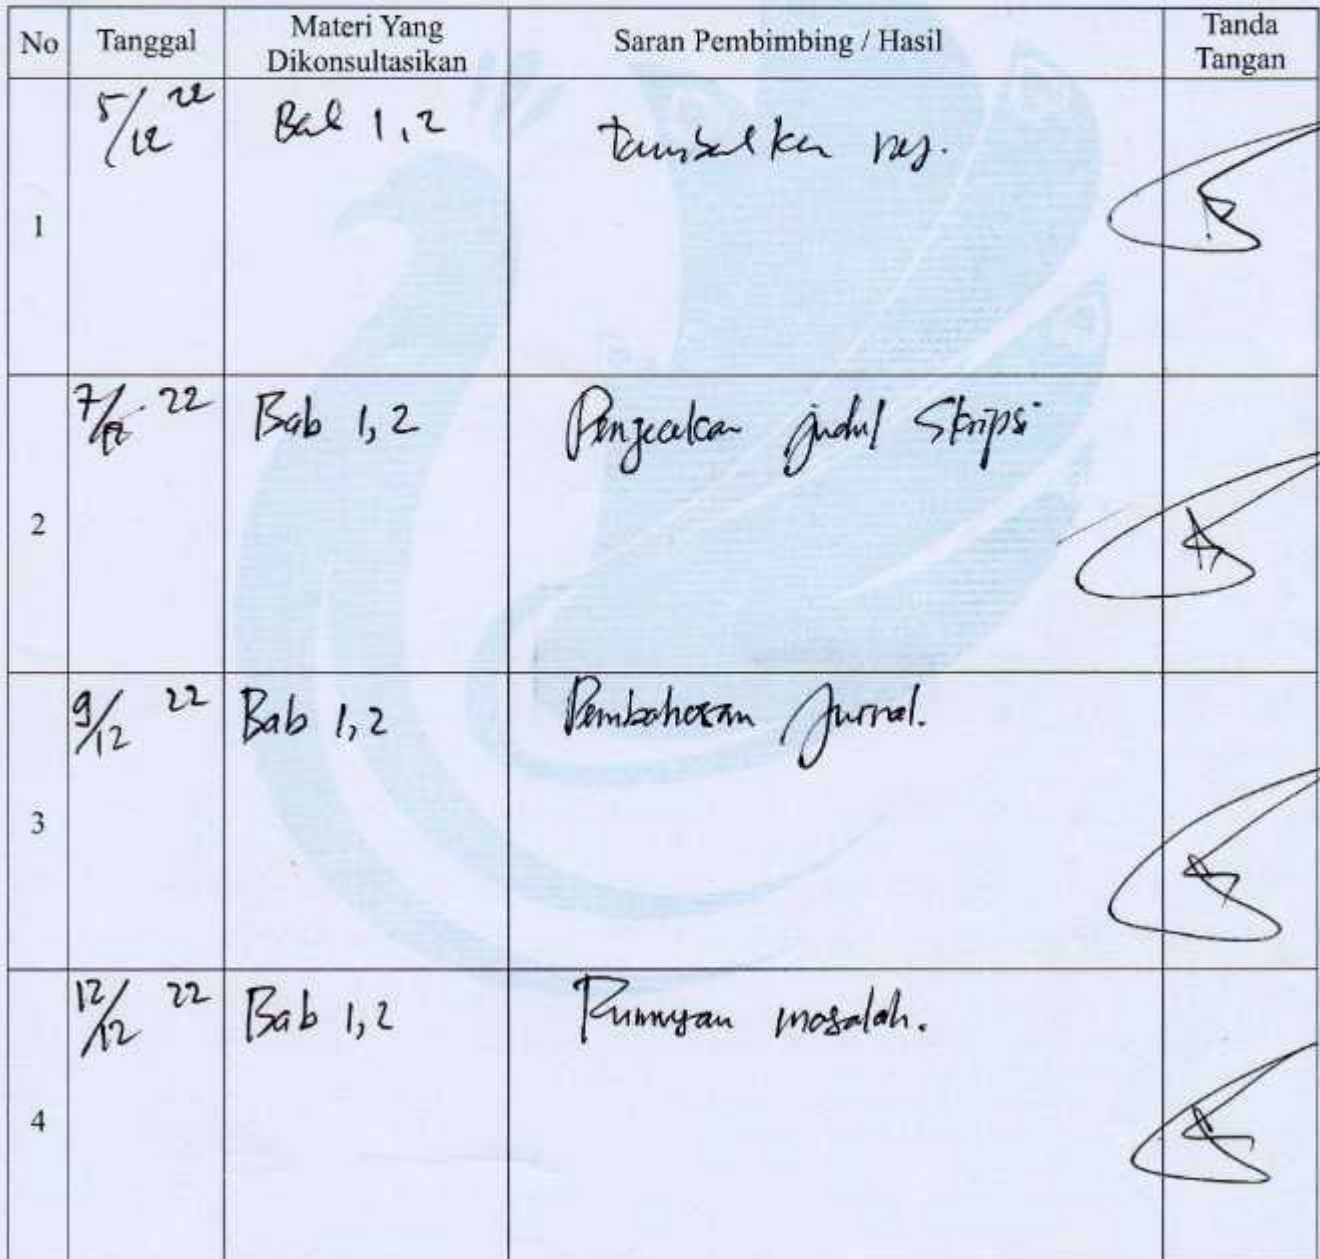 No Tanggal Materi Yang Dikonsultasikan Saran Pembimbing / Hasil Tanda Tangan
1 5/12 22 Bab 1,2 Tambahkan
2 7/12 22 Bab 1,2 Pengecekan judul Skripsi
3 9/12 22 Bab 1,2 Pembahasan Jurnal.
4 12/12 22 Bab 1,2 Rumusan masalah.